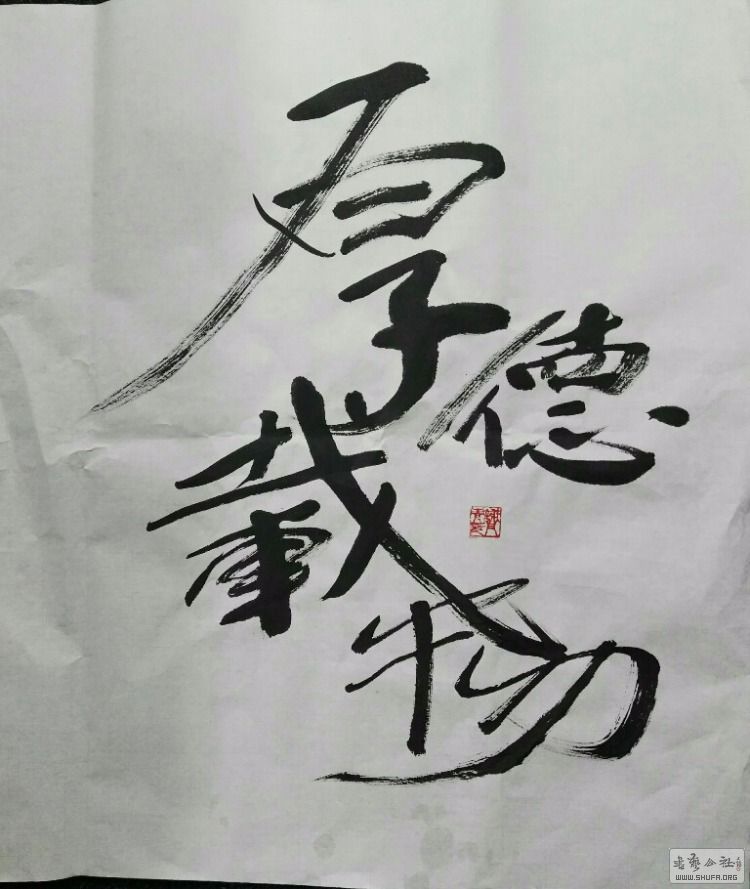 厚
德
載
物
書藝公社
WWW.SHUFA.ORG